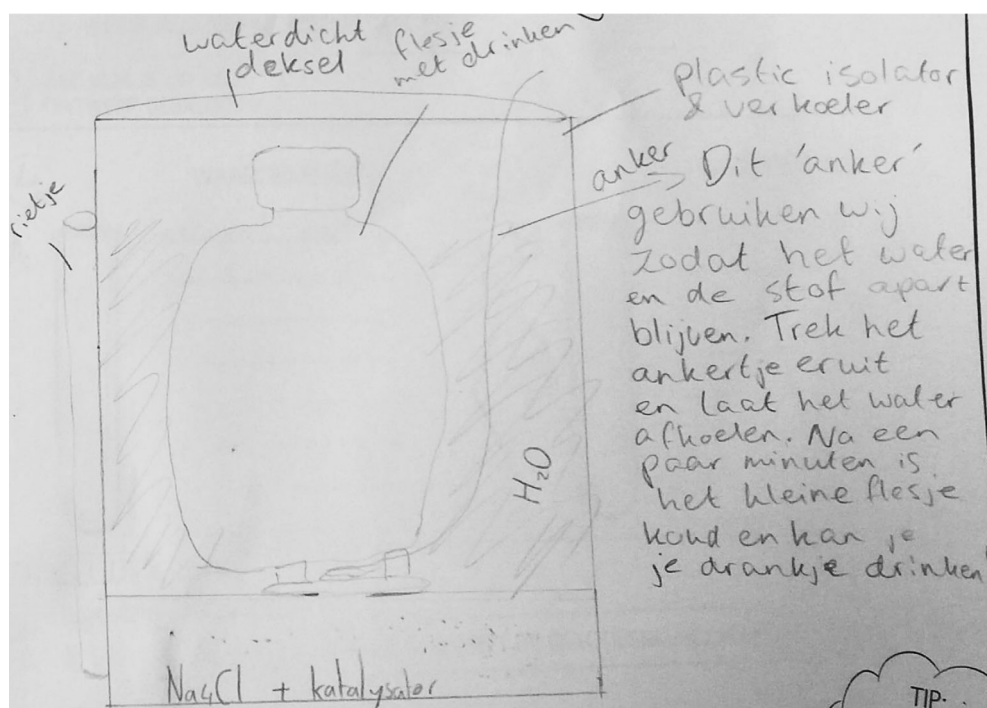 waterdicht
deksel
flesje
met drinken
plastic isolator
& verkoeler
rietje
anker
Dit 'anker'
gebruiken wij
zodat het water
en de stof apart
blijven. Trek het
ankertje eruit
en laat het water
afkoelen. Na een
paar minuten is
het kleine flesje
koud en kan je
je drankje drinken
H₂O
Na4Cl + katalysator
TIP.